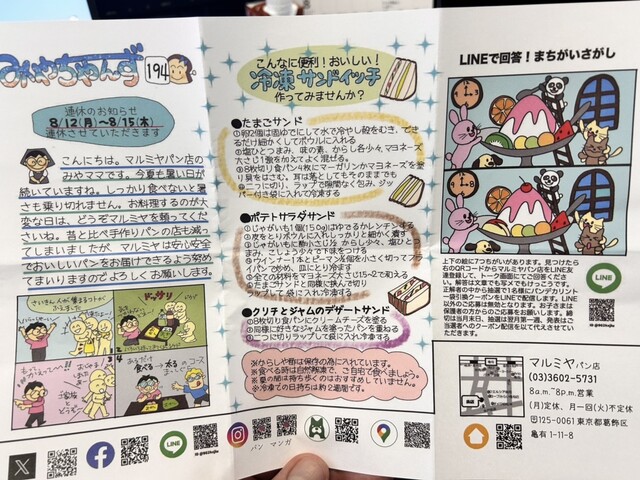 みやちゃんず
194
連休のお知らせ
8/12(月)〜8/15(木)
連休させていただきます
こんにちは。マルミヤパン店の
みやママです。今夏も暑い日が
続いていますね。しっかり食べないと暑
さも乗り切れません。お料理するのが大
変な日は、どうぞマルミヤを頼ってくだ
さいね。昔と比べ手作りパンの店も減っ
てしまいましたが、マルミヤは安心安全
でおいしいパンをお届けできるよう努め
てまいりますのでよろしくお願いします。
ドッサリ
食べる→太る
のコース
こんなに便利!おいしい!
冷凍サンドイッチ
作ってみませんか?
●たまごサンド
①卵2個は固ゆでにして水で冷やし殻をむき、でき
るだけ細かくしてボウルに入れる
②塩ひとつまみ、味の素、からし各少々、マヨネーズ
大さじ1強を加えてよく混ぜる。
③8枚切り食パン4枚にマーガリンかマヨネーズを塗
り具をはさむ。耳は落としてもそのままでも
④二つに切り、ラップで隙間なく包み、ジッ
パー付き袋に入れて冷凍する
●ポテトサラダサンド
①じゃがいも1個(150g)はゆでるかレンチンする
②皮をとりボウルに入れしっかりと細かく潰す
③じゃがいもに酢小さじ½ からし少々、塩ひと
つまみ、こしょう少々で下味をつける
④ウインナー1本とピーマン½個を小さく切ってフラ
イパンで炒め、皿にとり冷ます
⑤全ての材料をマヨネーズ大さじ1.5〜2で和える
⑥たまごサンドと同様に挟んで切り
ラップして袋に入れ冷凍する
●クリチとジャムのデザートサンド
①8枚切り食パンにクリームチーズを塗る
②同様に好きなジャムを塗ったパンを重ねる
③二つに切りラップして袋に入れ冷凍する
※からしや酢は保存の為に入れています。
※食べる時は自然解凍で、ご自宅で食べましょう。
※夏の間は持ち歩くのはおすすめしていません。
※冷凍での日持ちは約2週間です。
パン マンガ
LINEで回答!まちがいさがし
上下の絵に7つちがいがあります。見つけたら
右のQRコードからマルミヤパン店をLINE友
達登録して、トーク画面にてご回答くださ
い。解答は文章でも写メでもけっこうです。
正解者の中から抽選で1名様にパンデカプリント
一袋引換クーポンをLINEで配信します。LINE
以外のご応募は無効となります。お子さまは
保護者の方からのご応募をお願いします。締
切は当月末日、抽選は翌月第一週、発表はご
当選者へのクーポン配信を以て代えさせていた
だきます。
LINE
マルミヤパン店
(03)3602-5731
8a.m.~8p.m.営業
(月)定休、月一回(火)不定休
〒125-0061東京都葛飾区
亀有1-11-8